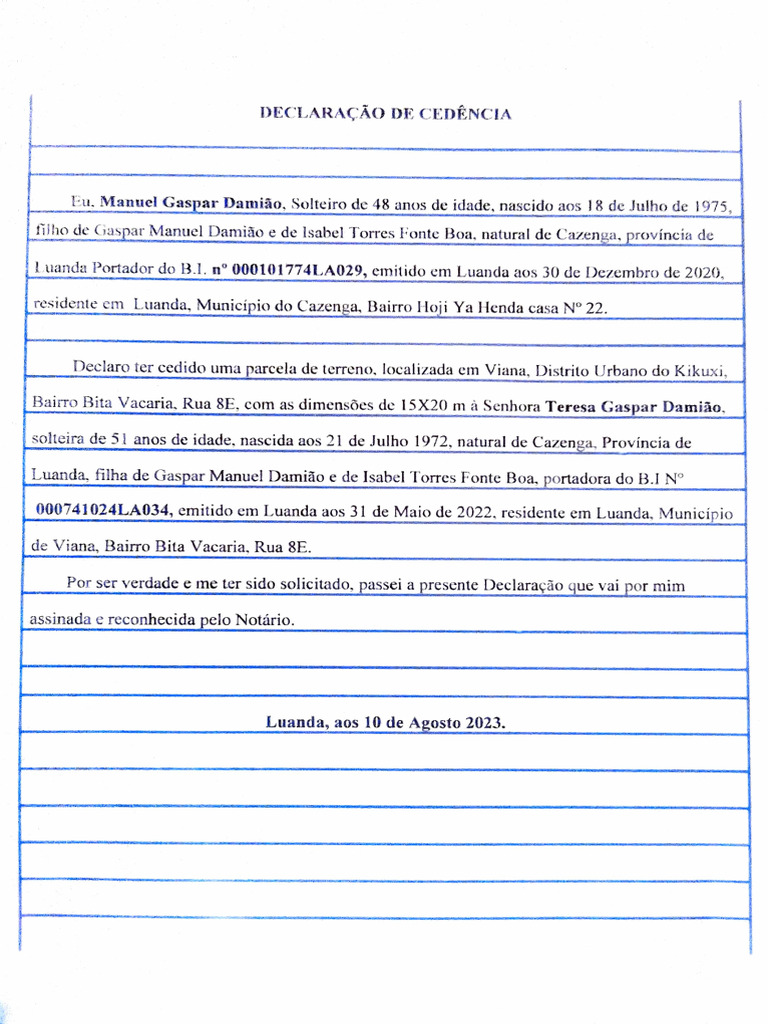 DECLARAÇÃO DE CEDÊNCIA
Eu, Manuel Gaspar Damião, Solteiro de 48 anos de idade, nascido aos 18 de Julho de 1975,
filho de Gaspar Manuel Damião e de Isabel Torres Fonte Boa, natural de Cazenga, província de
Luanda Portador do B.I. nº 000101774LA029, emitido em Luanda aos 30 de Dezembro de 2020,
residente em Luanda, Município do Cazenga, Bairro Hoji Ya Henda casa Nº 22.
Declaro ter cedido uma parcela de terreno, localizada em Viana, Distrito Urbano do Kikuxi,
Bairro Bita Vacaria, Rua 8E, com as dimensões de 15X20 m à Senhora Teresa Gaspar Damião,
solteira de 51 anos de idade, nascida aos 21 de Julho 1972, natural de Cazenga, Província de
Luanda, filha de Gaspar Manuel Damião e de Isabel Torres Fonte Boa, portadora do B.I Nº
000741024LA034, emitido em Luanda aos 31 de Maio de 2022, residente em Luanda, Município
de Viana, Bairro Bita Vacaria, Rua 8E.
Por ser verdade e me ter sido solicitado, passei a presente Declaração que vai por mim
assinada e reconhecida pelo Notário.
Luanda, aos 10 de Agosto 2023.